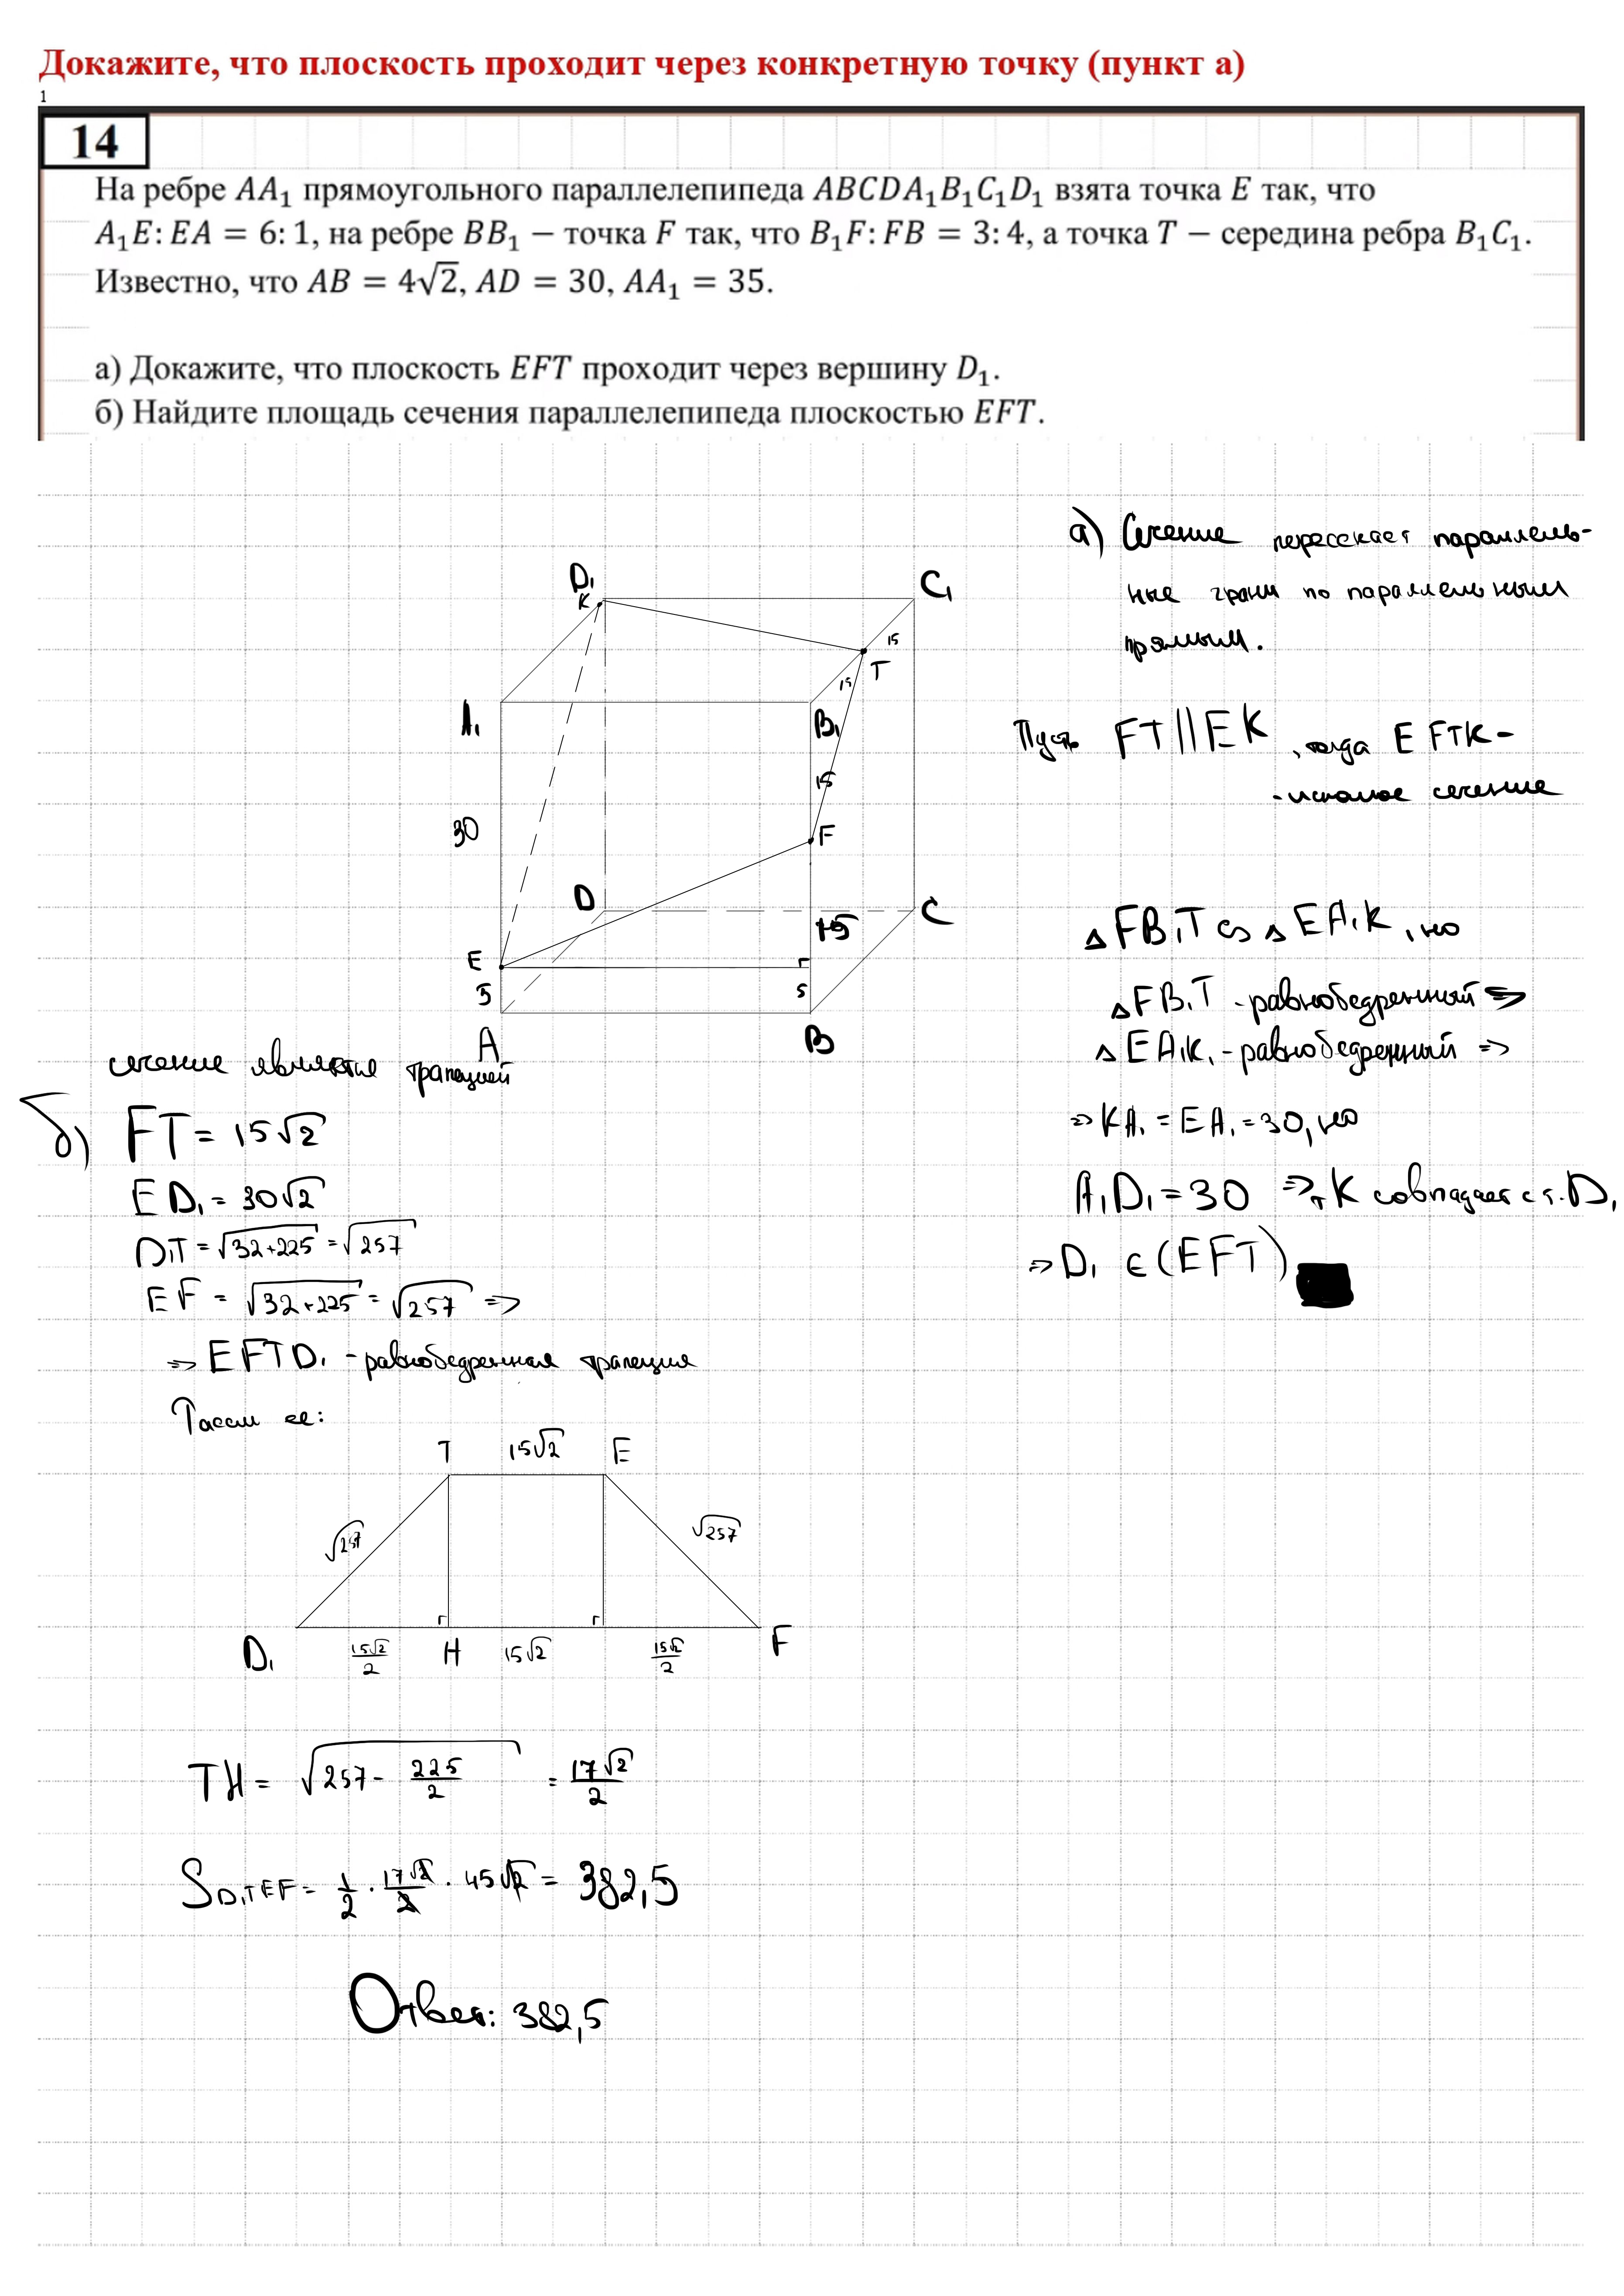 Докажите, что плоскость проходит через конкретную точку (пункт а)
1
14
На ребре AA₁ прямоугольного параллелепипеда ABCDA₁B₁C₁D₁ взята точка E так, что
A₁E: EA = 6: 1, на ребре BB₁ − точка F так, что B₁F: FB = 3: 4, а точка T − середина ребра B₁C₁.
Известно, что AB = 4√2, AD = 30, AA₁ = 35.
а) Докажите, что плоскость EFT проходит через вершину D₁.
б) Найдите площадь сечения параллелепипеда плоскостью EFT.
а) Сечение пересекает параллель-
ные грани по параллельным
прямым.
Пусть FT || EK, тогда EFTK -
- искомое сечение
△FB₁T ∽ △EA₁K, но
△FB₁T - равнобедренный ⇒
△EA₁K₁ - равнобедренный ⇒
⇒ KA₁ = EA₁ = 30, но
A₁D₁ = 30 ⇒ т. K совпадает с т. D₁
⇒ D₁ ∈ (EFT)
D₁
K
C₁
15
T
15
A₁
B₁
15
30
F
D
C
15
E
5
5
A
B
сечение является трапецией
б) FT = 15√2
ED₁ = 30√2
D₁T = √32+225 = √257
EF = √32+225 = √257 ⇒
⇒ EFTD₁ - равнобедренная трапеция
T
15√2
E
√257
√257
D₁
15√2/2
H
15√2
15√2/2
F
TH = √257 - 225/2 = 17√2/2
S D₁TEF = 1/2 · 17√2/2 · 45√2 = 382,5
Ответ: 382,5